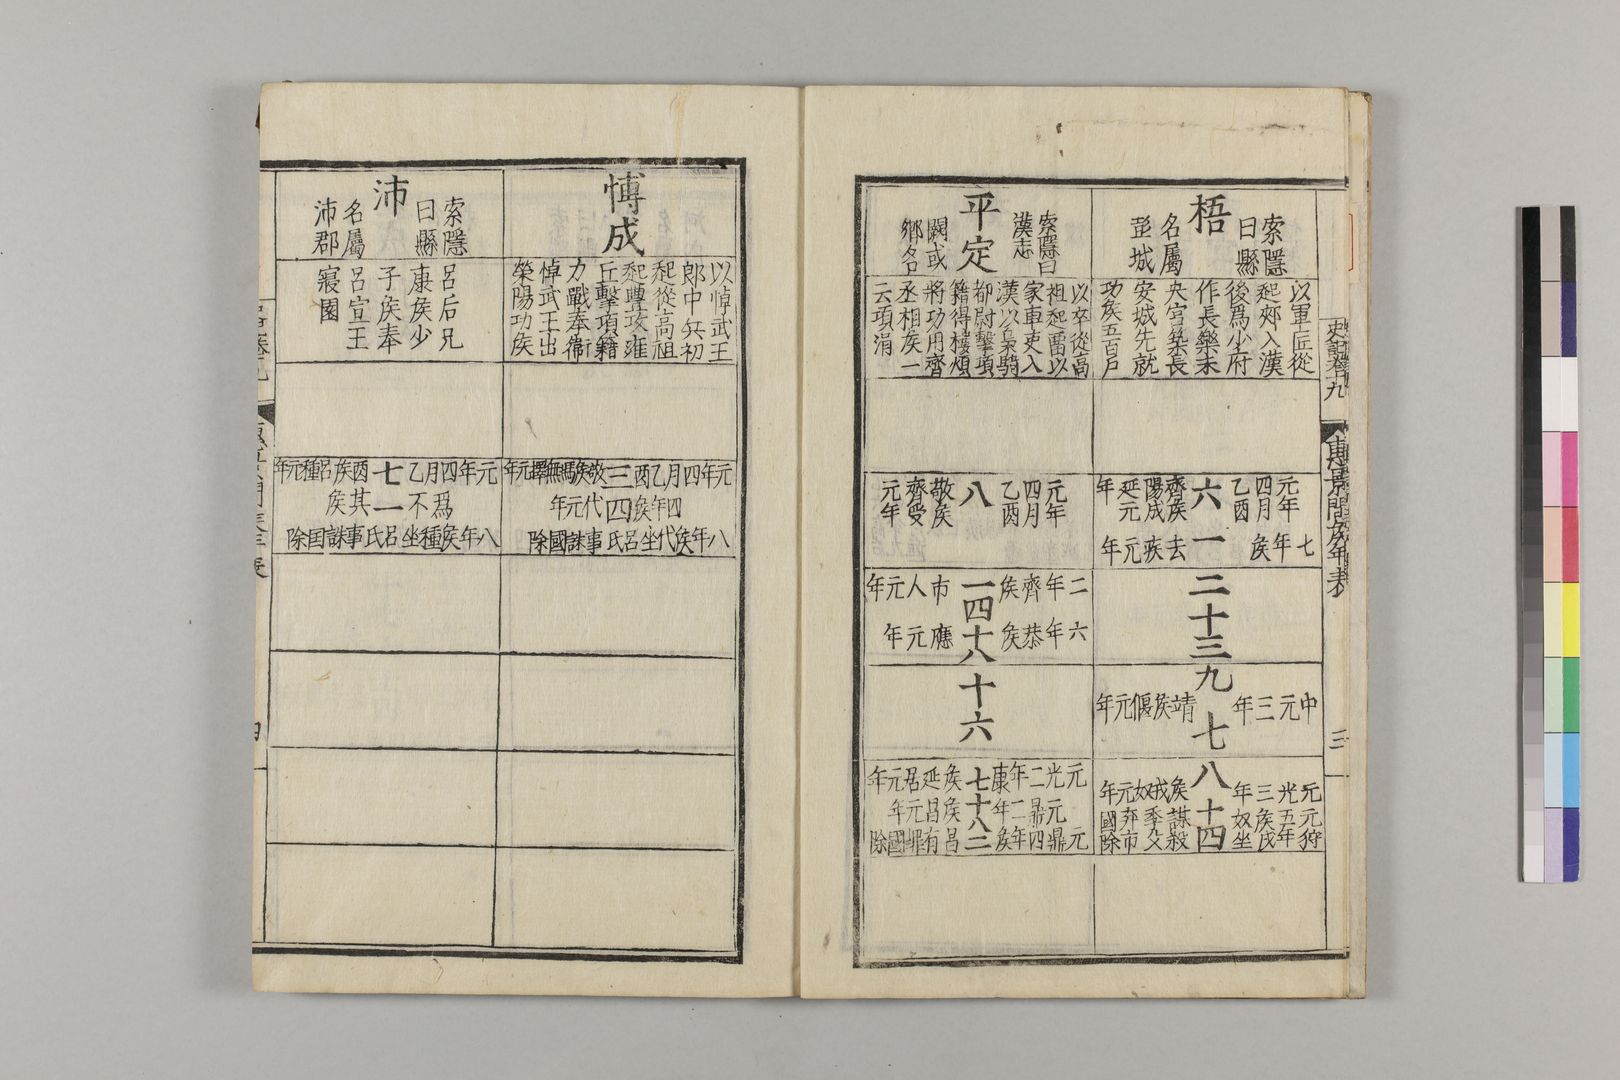 史記卷十九
惠景間侯年表
三
梧
索隱
曰縣
名屬
彭城
以軍匠從
起郟入漢
後爲少府
作長樂未
央宮築長
安城先就
功侯五百戶
元年
四月
乙酉
六
齊侯
陽成
延元
年
七
年
侯
一
去
疾
元
年
二十三
九
中
元
三
年
七
靖
侯
偃
元
年
八
十四
元
光
三
年
侯
戎
奴
元
年
元狩
五年
侯戎
奴坐
謀殺
季父
弃市
國除
平定
索隱曰
漢志
闕或
鄉名
以卒從高
祖起畱以
家車吏入
漢以梟騎
都尉擊項
籍得樓煩
將功用齊
丞相侯一
云項涓
元年
四月
乙酉
八
敬侯
齊受
元年
二
年
齊
侯
一
市
人
元
年
六
年
恭
侯
四
應
元
年
十八
十六
元
光
二
年
康
侯
七
延
居
元
年
元
鼎
二
年
侯
十八
昌
元
年
元
鼎
四
年
侯
二
昌
有
罪
國
除
愽成
以悼武王
郎中兵初
起從高祖
起豐攻雍
丘擊項籍
力戰奉衞
悼武王出
滎陽功侯
元年四月
乙酉
三
敬侯馮無擇元年
四年
侯
四
代元年
八年侯代坐呂氏事誅國除
沛
索隱
曰縣
名屬
沛郡
呂后兄
康侯少
子侯奉
呂宣王
寢園
元年四月乙酉
七
侯呂種元年
爲不
一
其侯
八年侯種坐呂氏事誅国除
四